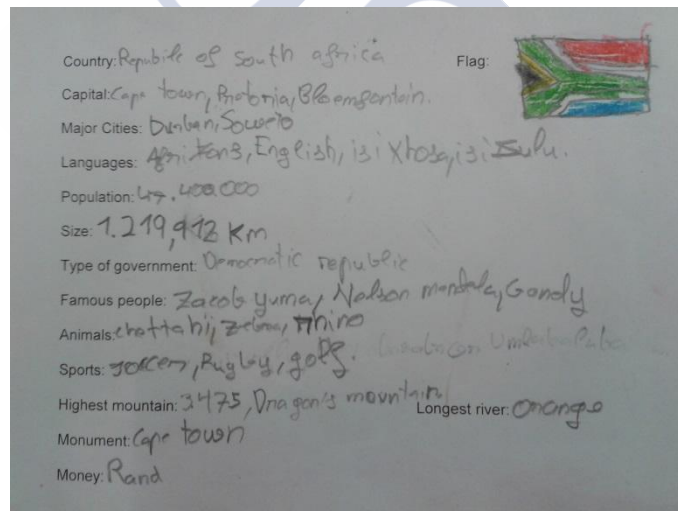 Country: Repubile of South africa Flag:
Capital: Cape town, Pretoria, Bloemfontein.
Major Cities: Durban, Soweto
Languages: Afrikans, English, isi Xhosa, isi Zulu.
Population: 47.400.000
Size: 1.219,912 Km
Type of government: Democratic republic
Famous people: Zacob yuma, Nelson mandela, Gandy
Animals: chettahi, zebra, rhino
Sports: soccer, Rugby, golf.
Highest mountain: 3475, Dragon's mountain Longest river: Orange
Monument: Cape town
Money: Rand